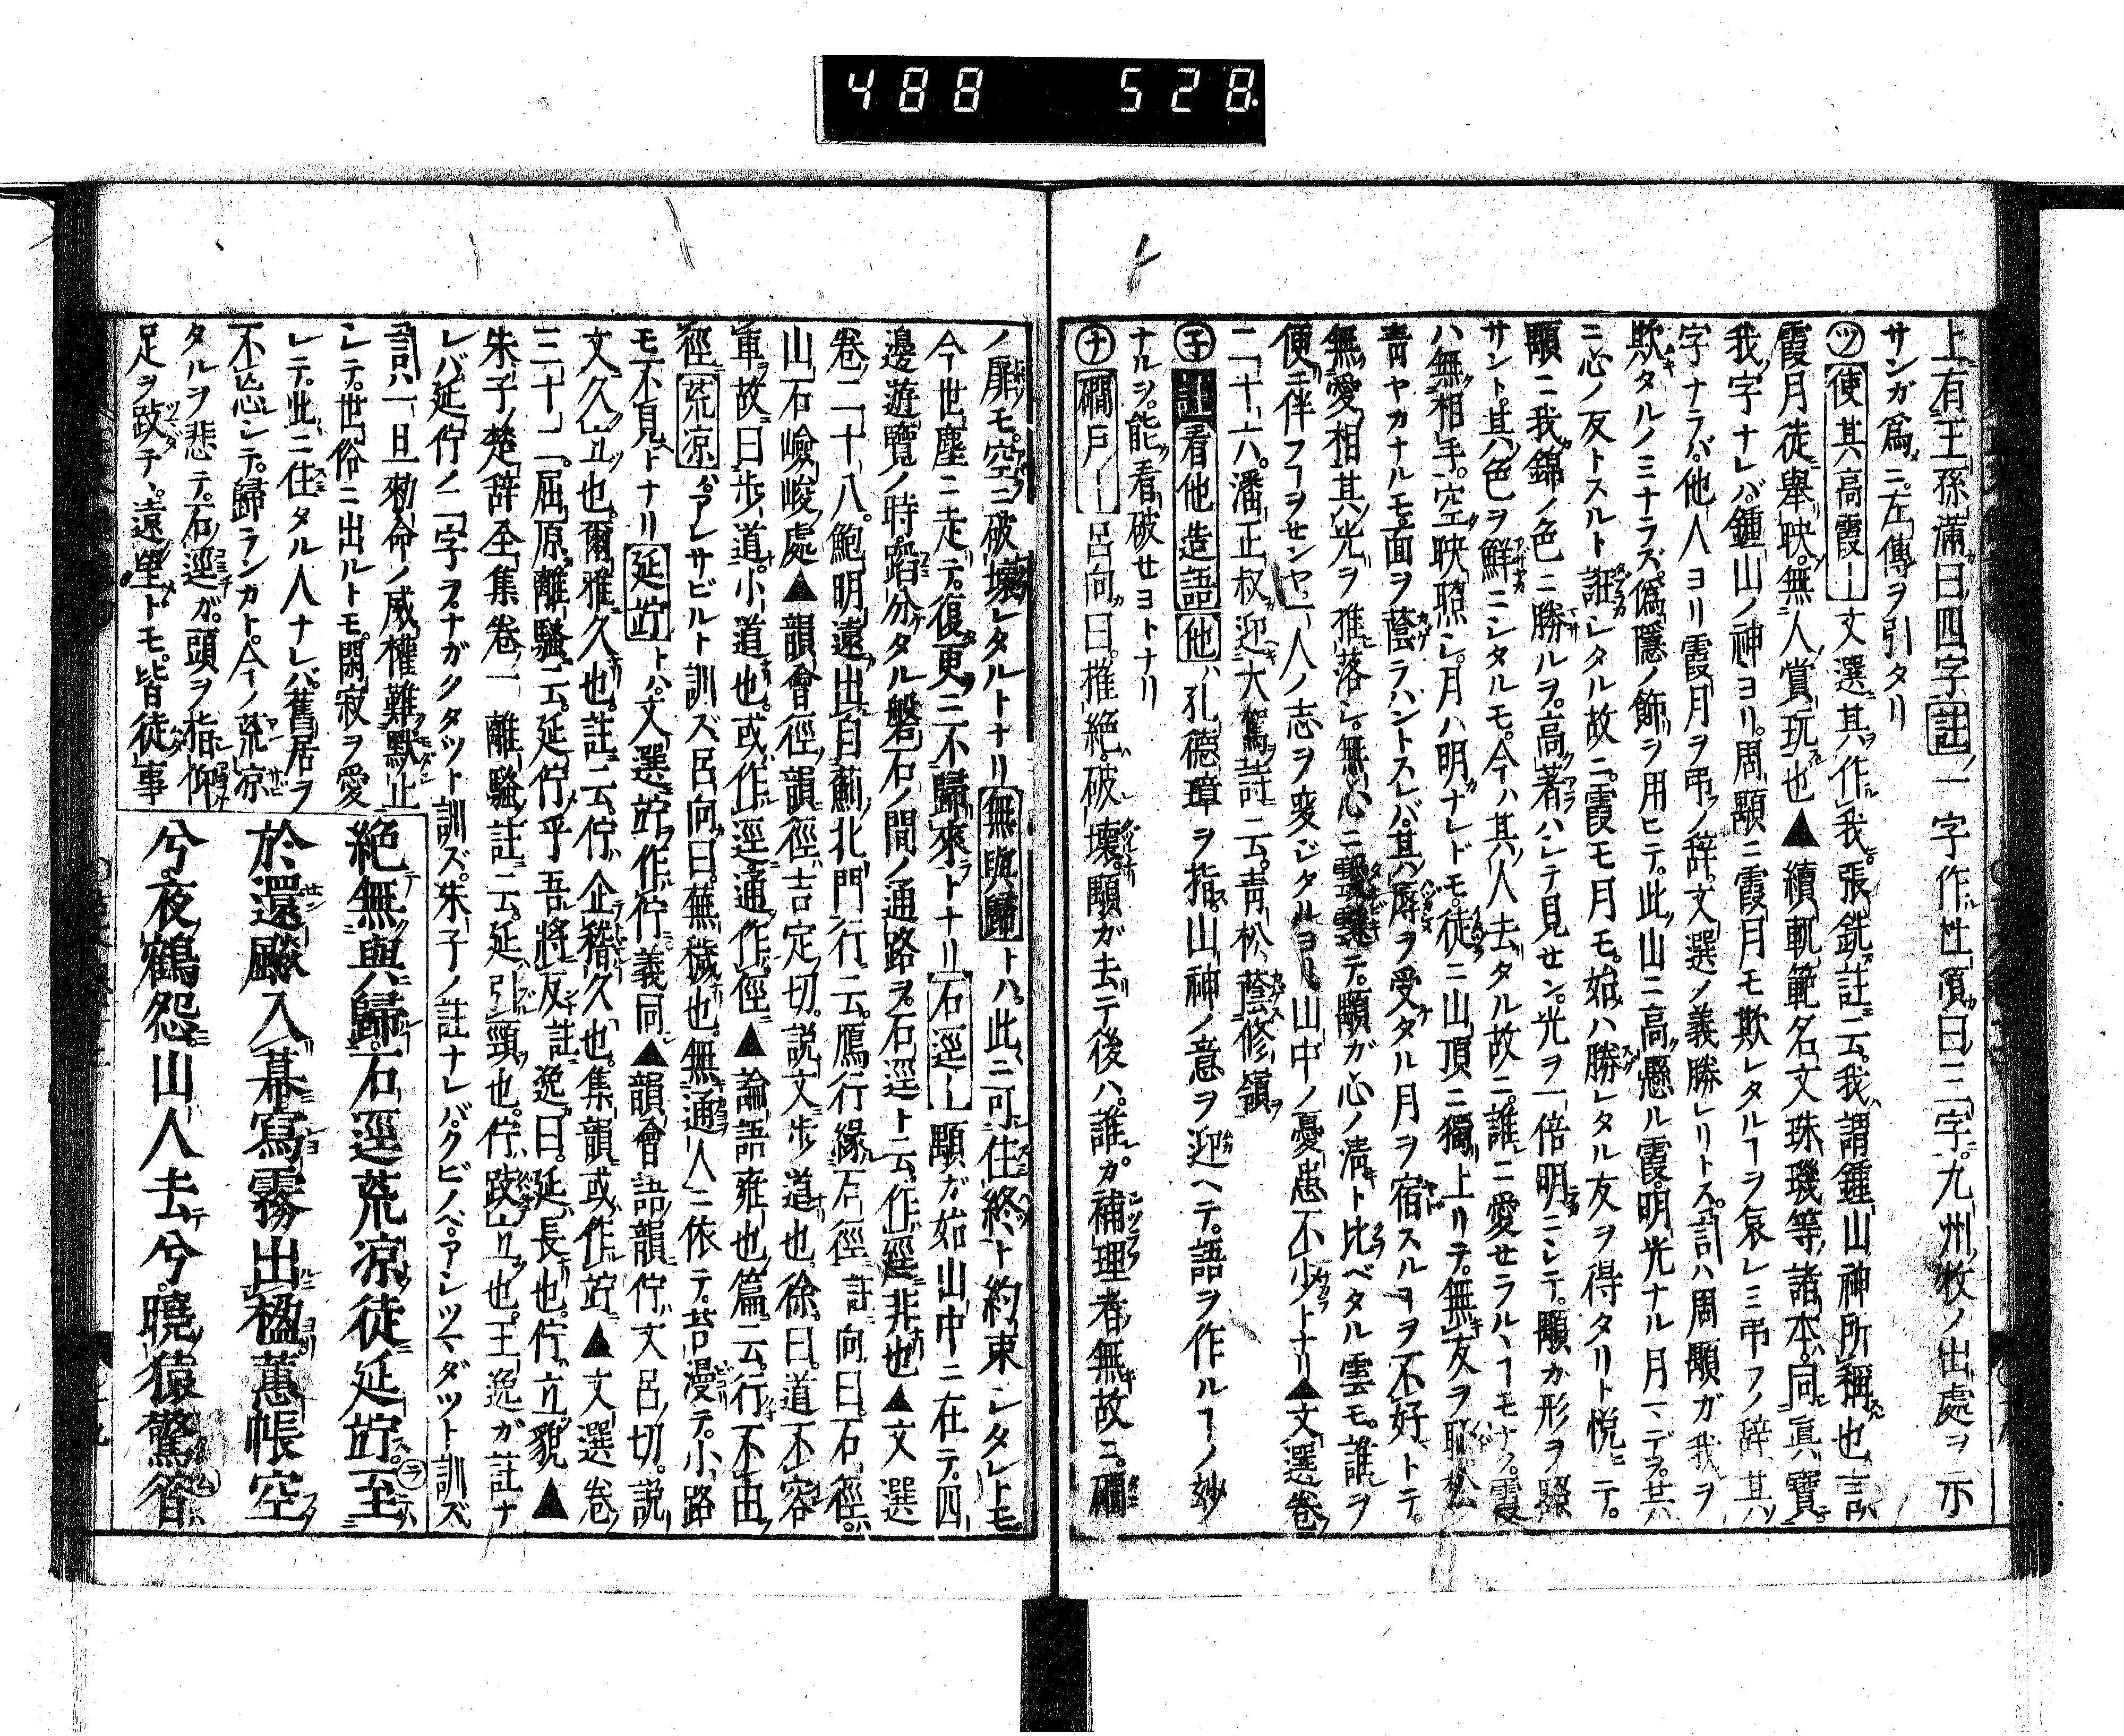 488 528
上有王孫滿曰四字註一字作性頂曰三字九州牧ノ出處ヲ示
サンガ爲ニ左傳ヲ引タリ
ツ使其高霞ー文選其作我張銑註云我謂鍾山神所稱也言
霞月徒舉映無人賞玩也▲續軌範名文珠璣等諸本同眞寶
我字ナレバ鍾山ノ神ヨリ周顒ニ霞月モ欺レタルヿヲ哀レミ弔フノ辞其
字ナラバ他人ヨリ霞月ヲ弔ノ辞文選ノ義勝レリトス言ハ周顒ガ我ヲ
欺タルノミナラズ僞隱ノ飾ヲ用ヒテ此山ニ高懸ル霞明光ナル月マデヲ共
ニ心ノ友トスルト誑レタル故ニ霞モ月モ始ハ勝レタル友ヲ得タリト悦ニテ
顒ニ我錦ノ色ニ勝ルヲ高著ハレテ見セン光ヲ一倍明ニシテ顒カ形ヲ照
サント其色ヲ鮮ニシタルモ今ハ其人去タル故ニ誰ニ愛セラルヽヿモナク霞
ハ無相手空映照シ月ハ明ナレドモ徒ニ山頂ニ獨上リテ無友ヲ耻松
青ヤカナルモ面ヲ蔭ラハントスレバ其辱ヲ受タル月ヲ宿スルヿヲ不好トテ
無愛相其光ヲ推落シ無心ニ靉靆テ顒ガ心ノ清ト比ベタル雲モ誰ヲ
便ニ伴フヿヲセンヤ一人ノ志ヲ変ジタルヨリ山中ノ憂患不少トナリ▲文選卷
二十六潘正叔迎大駕詩ニ云青松蔭修嶺
子看他造語他ハ孔德璋ヲ指山神ノ意ヲ迎ヘテ語ヲ作ルヿノ妙
ナルシ能看破セヨトナリ
ナ礀戸ー呂向曰摧絶破壞顒ガ去テ後ハ誰カ補理者無故ニ礀
ノ扉モ空ニ破壞レタルトナリ無與歸トハ此ニ可住終ト約束シタレトモ
今世塵ニ走テ復更ニ不歸來トナリ石逕ー顒ガ始山中ニ在テ四
邊遊覽ノ時蹈分タル磐石ノ間ノ通路ヲ石逕ト云作經非也▲文選
卷二十八鮑明遠出自薊北門行ニ云鴈行緣石徑註向曰石徑
山石嶮峻處▲韻會徑韻徑吉定切説文歩道也徐曰道不容
車故曰歩道小道也或作逕通作徑▲論語雍也篇云行不由
徑荒凉ハアレサビルト訓ズ呂向曰蕪穢也無通人ニ依テ苔漫テ小路
モ不見トナリ延竚トハ文選竚作佇義同▲韻會語韻佇丈呂切説
文久立也爾雅久也註云佇企稽久也集韻或作竚▲文選卷
三十二屈原離騷云延佇乎吾將反註逸曰延長也佇立貌▲
朱子楚辞全集卷一離騷註云延引頸也佇跂立也王逸ガ註ナ
レバ延佇ノ二字ヲナガクタツト訓ズ朱子ノ註ナレバクビノベアシツマダツト訓ズ
言ハ一旦勅命ノ威權難默止
シテ世俗ニ出ルトモ閑寂ヲ愛
レテ此ニ住タル人ナレバ舊居ヲ
不忘シテ歸ランカト今ノ荒凉
タルヲ悲テ石逕ガ頭ヲ指仰
足ヲ跂テ遠望トモ皆徒事
絶無與歸石逕荒凉徒延竚至
於還飇入幕寫霧出楹蕙帳空
兮夜鶴怨山人去兮曉猿驚昔